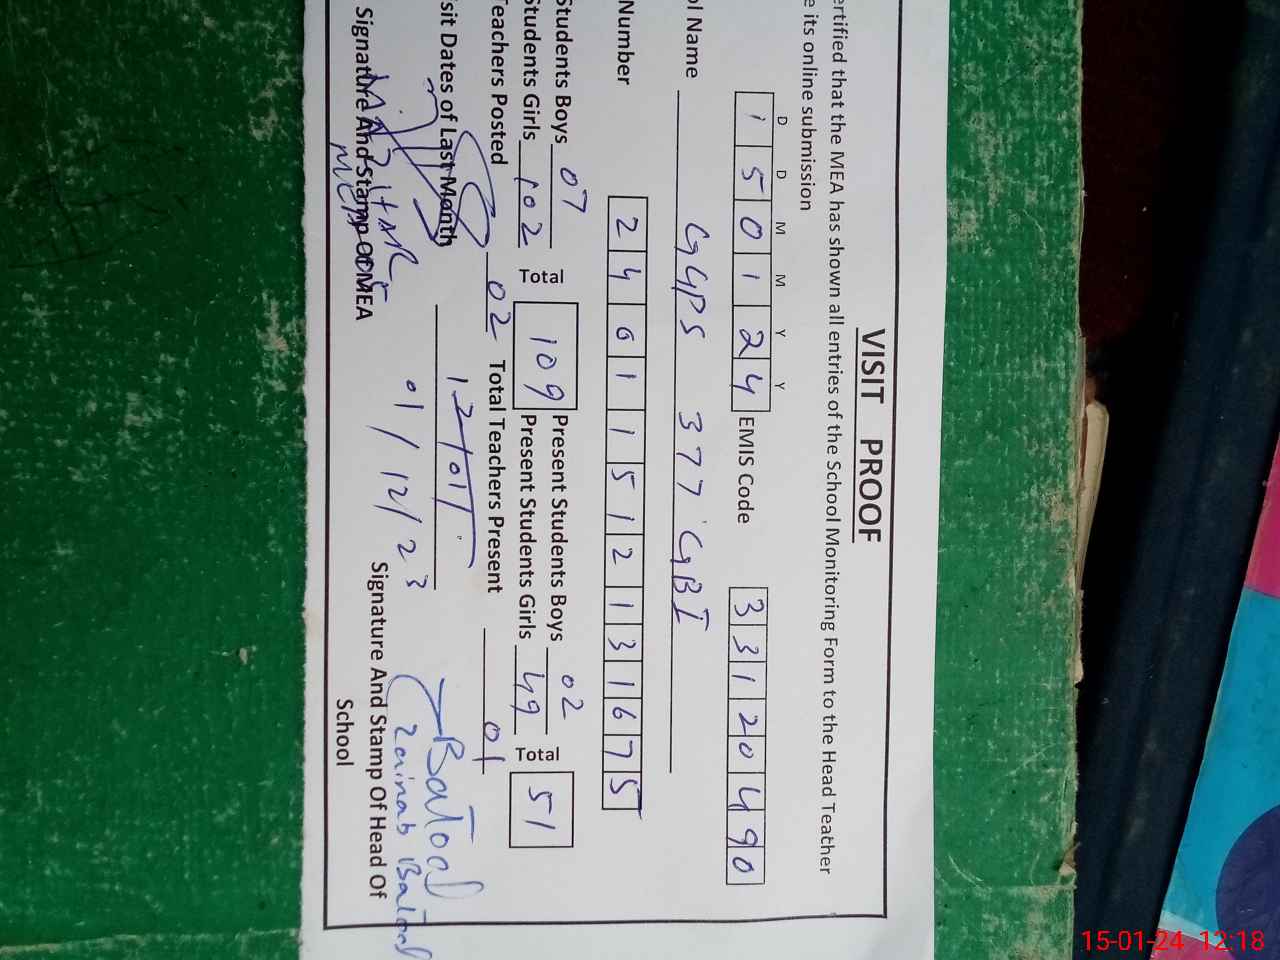 VISIT PROOF
ertified that the MEA has shown all entries of the School Monitoring Form to the Head Teather
e its online submission
D D M M Y Y
1 5 0 1 2 4 EMIS Code 3 3 1 2 0 4 9 0
ol Name GGPS 377 GBI
Number 2 4 6 1 1 5 1 2 1 3 1 6 7 5
Students Boys 07 Present Students Boys 02
Students Girls 102 Total 109 Present Students Girls 49 Total 51
Teachers Posted 02 Total Teachers Present 01
sit Dates of Last Month
01/12/23
Batool
Zainab Batool
Signature And Stamp Of MEA
MEA
Signature And Stamp Of Head Of
School
15-01-24 12:18